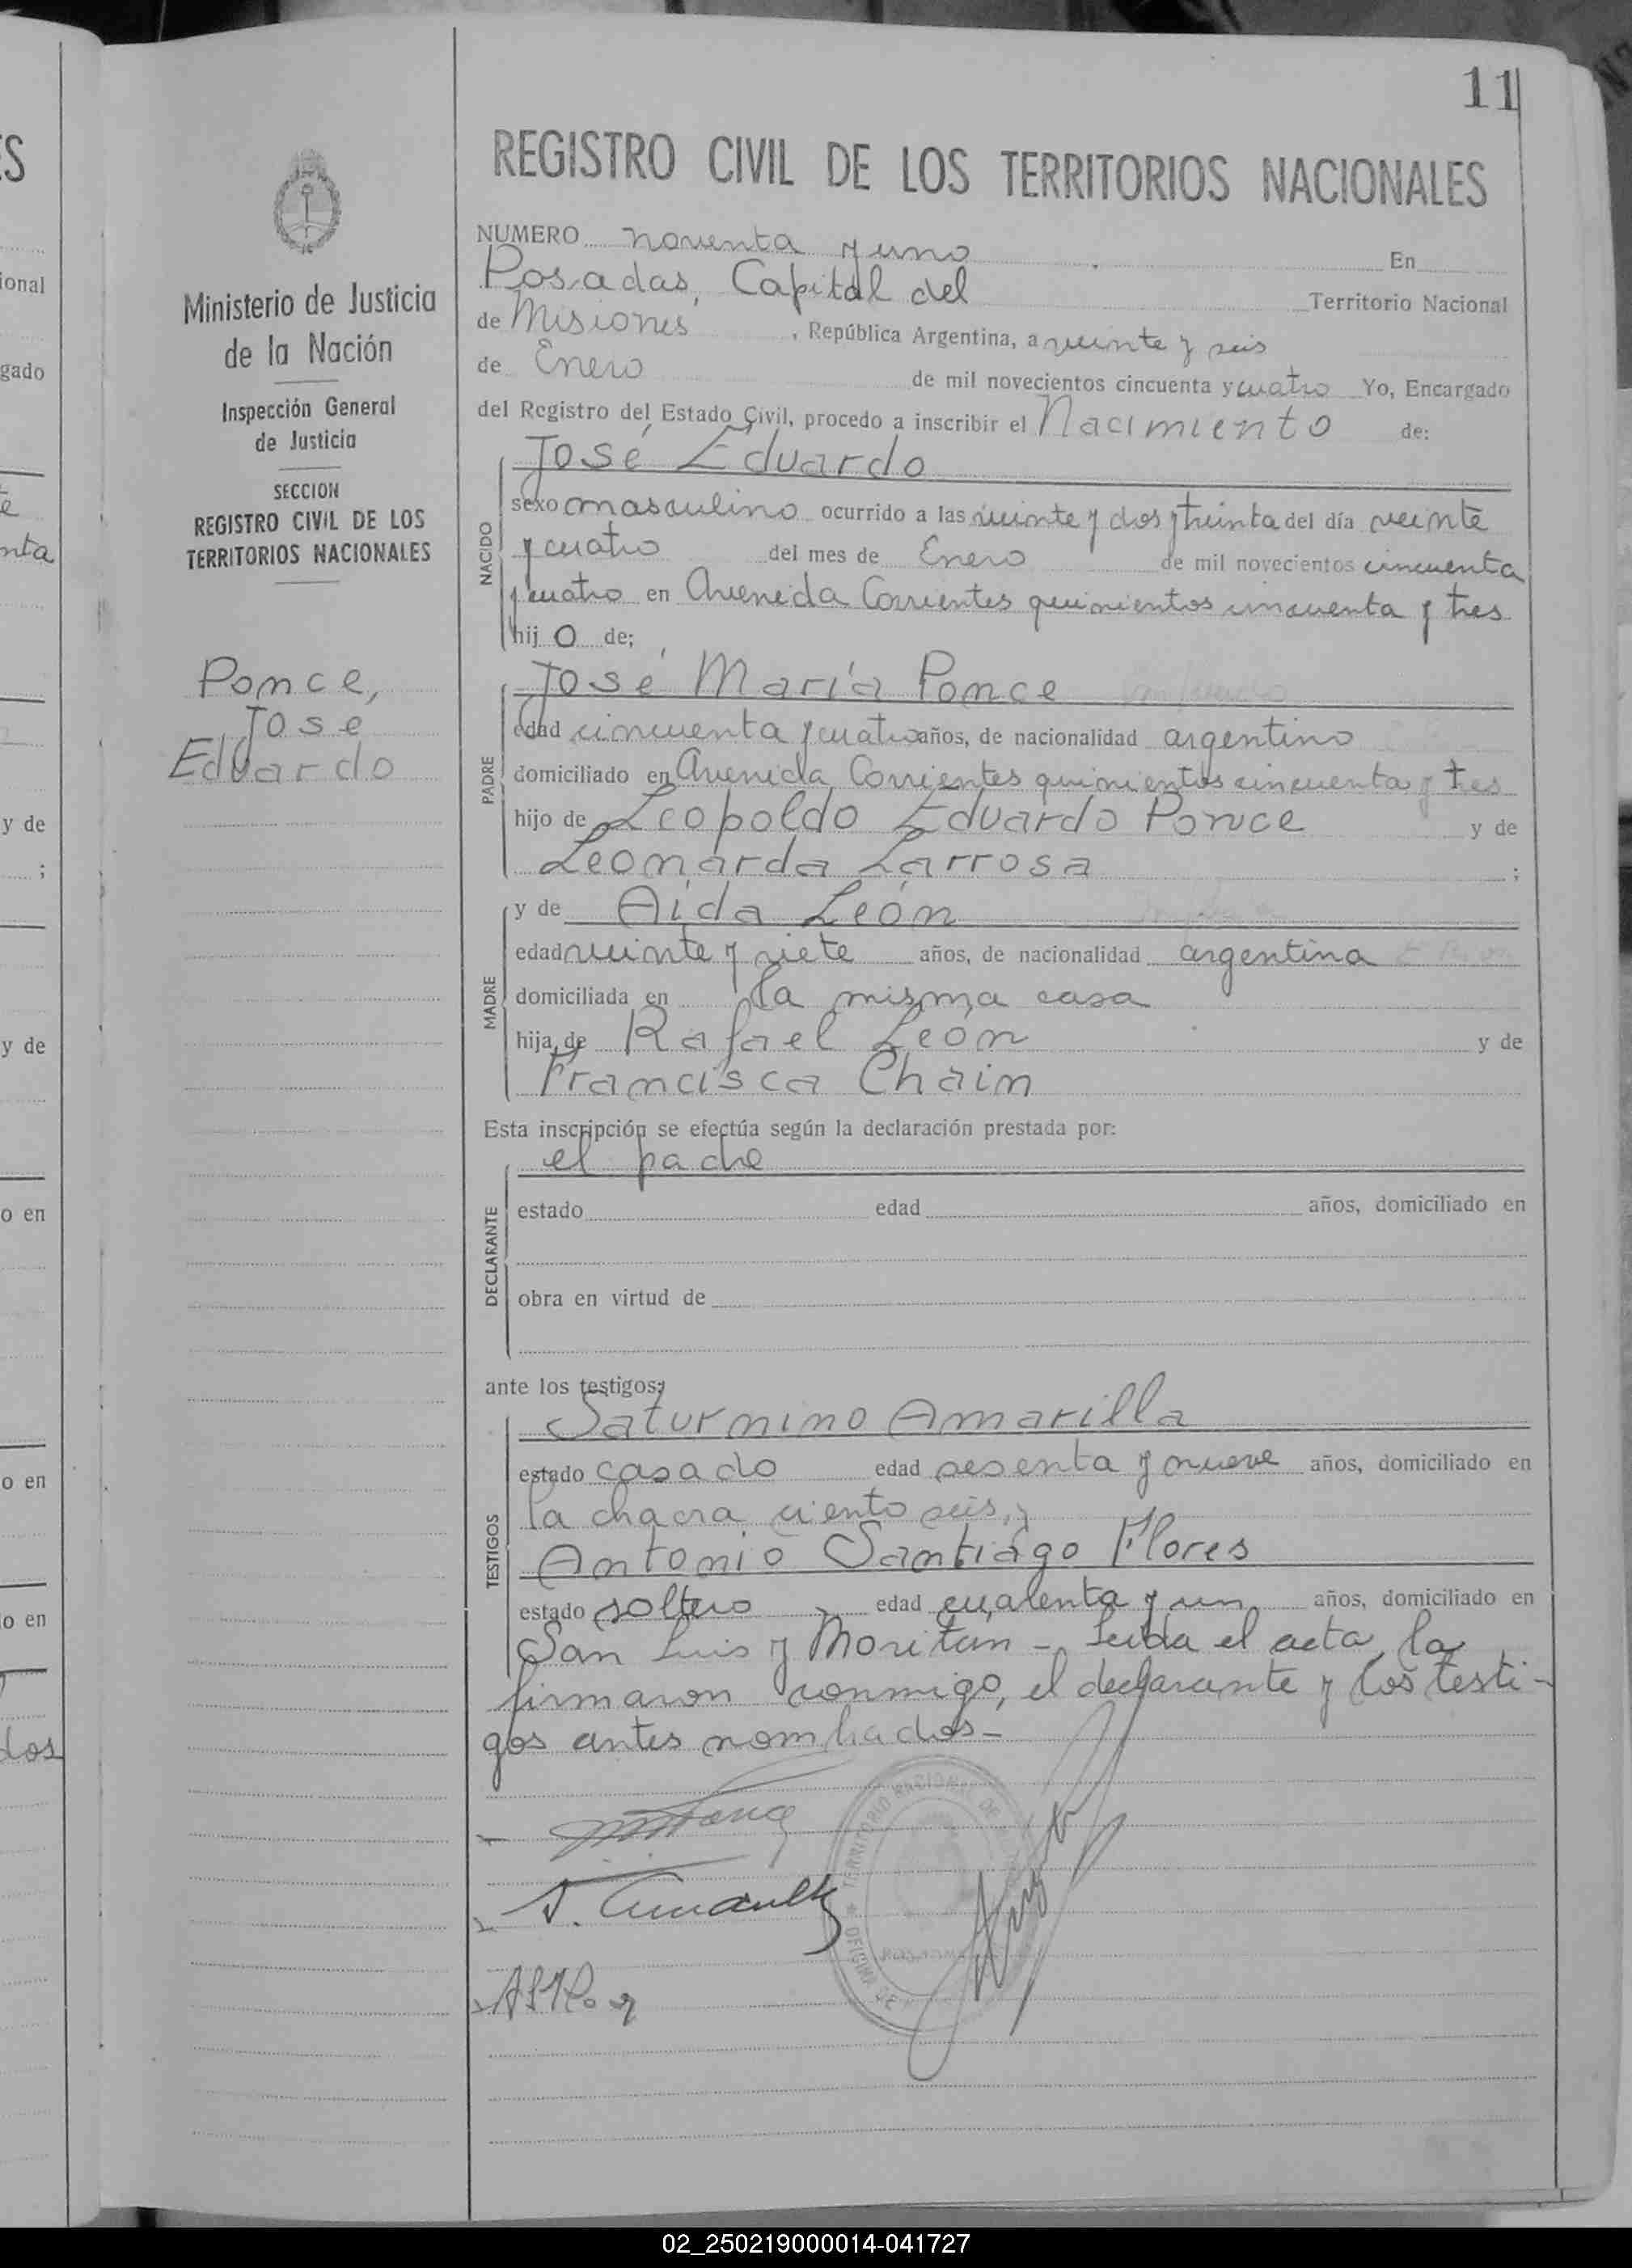 11
REGISTRO CIVIL DE LOS TERRITORIOS NACIONALES
Ministerio de Justicia
de la Nación
Inspección General
de Justicia
SECCION
REGISTRO CIVIL DE LOS
TERRITORIOS NACIONALES
Ponce,
José
Eduardo
NUMERO noventa y uno En
Posadas, Capital del Territorio Nacional
de Misiones, República Argentina, a veinte y seis
de Enero de mil novecientos cincuenta y cuatro Yo, Encargado
del Registro del Estado Civil, procedo a inscribir el Nacimiento de:
José Eduardo
NACIDO
sexo masculino ocurrido a las veinte y dos y treinta del día veinte
y cuatro del mes de Enero de mil novecientos cincuenta
y cuatro en Avenida Corrientes quinientos cincuenta y tres
hijo de;
José María Ponce
PADRE
edad cincuenta y cuatro años, de nacionalidad argentino
domiciliado en Avenida Corrientes quinientos cincuenta y tres
hijo de Leopoldo Eduardo Ponce y de
Leonarda Larrosa ;
y de Aída León
MADRE
edad veinte y siete años, de nacionalidad argentina
domiciliada en la misma casa
hija de Rafael León y de
Francisca Chain
Esta inscripción se efectúa según la declaración prestada por:
el padre
DECLARANTE
estado edad años, domiciliado en
obra en virtud de
ante los testigos:
Saturnino Amarilla
TESTIGOS
estado casado edad sesenta y nueve años, domiciliado en
la chacra ciento seis, y
Antonio Santiago Flores
estado soltero edad cuarenta y un años, domiciliado en
San Luis y Moritán - Leída el acta, la
firmaron conmigo, el declarante y los testi-
gos antes nombrados -
TERRITORIO NACIONAL DE
OFICINA DE
POSADAS
02_250219000014-041727